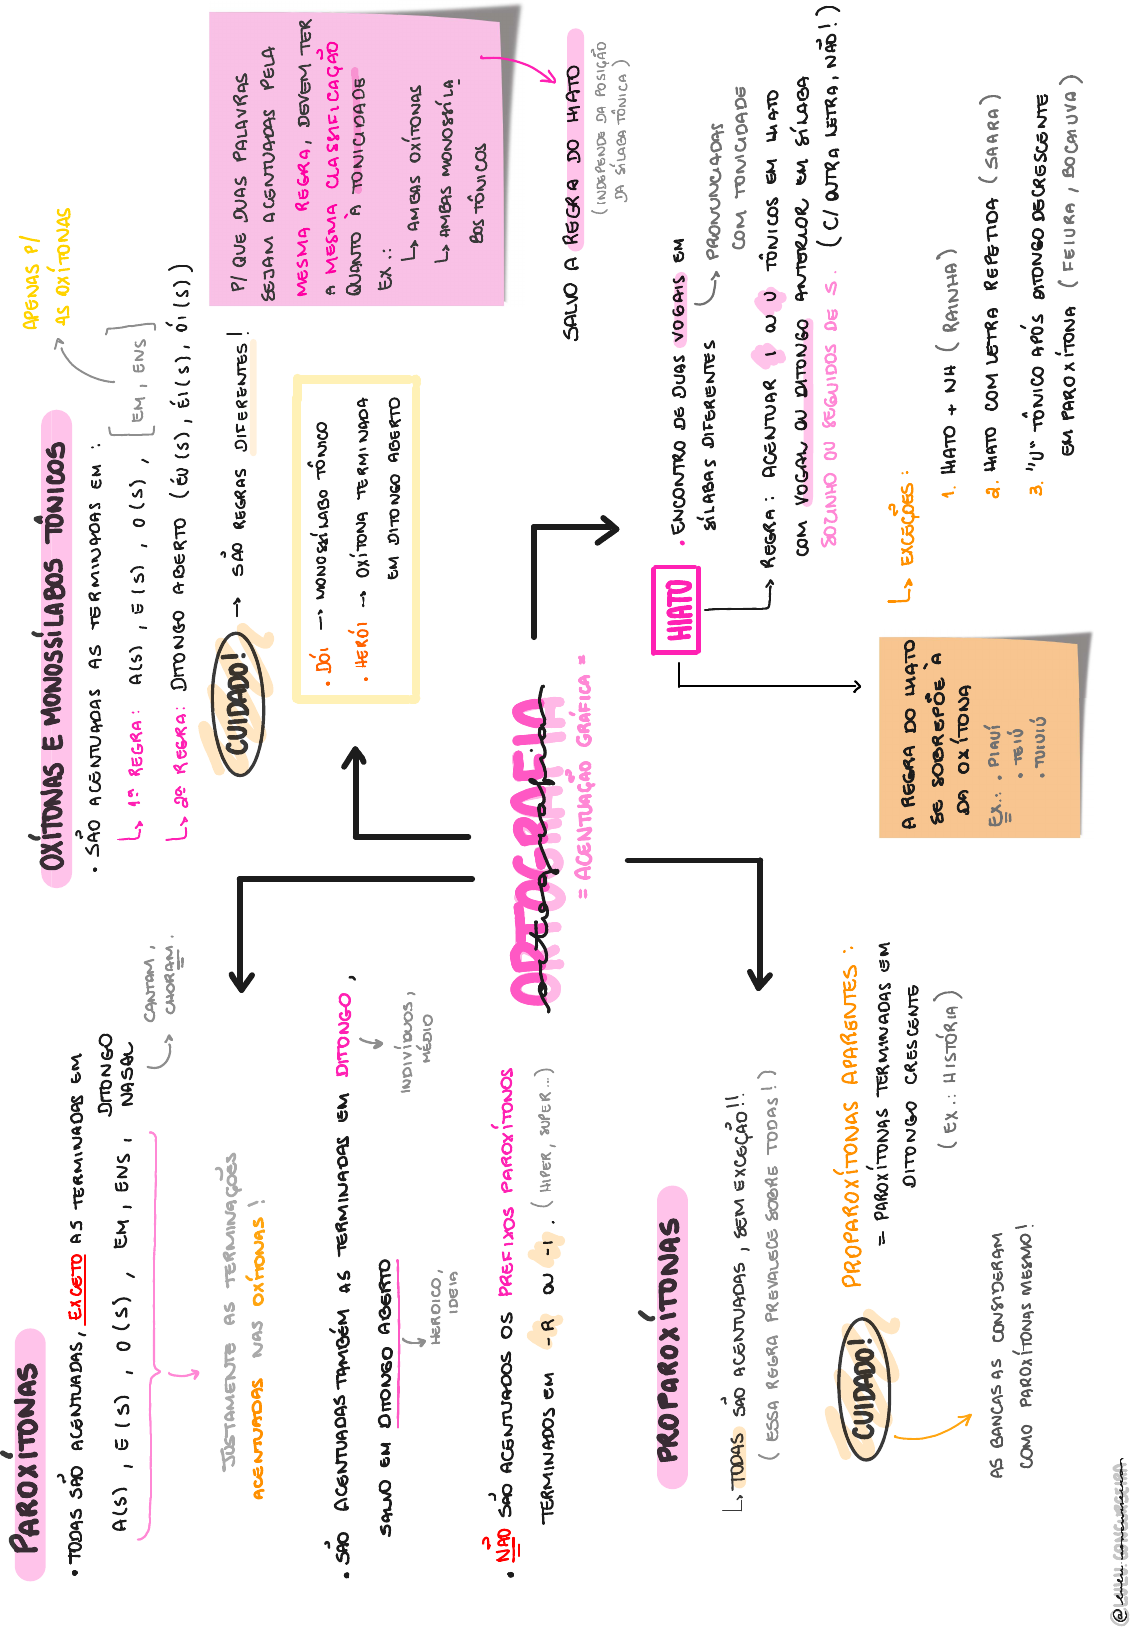 PAROXÍTONAS
• TODAS SÃO ACENTUADAS, EXCETO AS TERMINADAS EM
A(S), E(S), O(S), EM, ENS, DITONGO
NASAL
CANTAM,
CHORAM.
JUSTAMENTE AS TERMINAÇÕES
ACENTUADAS NAS OXÍTONAS!
• SÃO ACENTUADAS TAMBÉM AS TERMINADAS EM DITONGO,
SALVO EM DITONGO ABERTO
INDIVÍDUOS,
MÉDIO
HEROICO,
IDEIA
• NÃO SÃO ACENTUADOS OS PREFIXOS PAROXÍTONOS
TERMINADOS EM -R OU -I. (HIPER, SUPER...)
OXÍTONAS E MONOSSÍLABOS TÔNICOS
• SÃO ACENTUADAS AS TERMINADAS EM:
1ª REGRA: A(S), E(S), O(S), [EM, ENS]
APENAS P/
AS OXÍTONAS
2ª REGRA: DITONGO ABERTO (ÉU(S), ÉI(S), ÓI(S))
CUIDADO! → SÃO REGRAS DIFERENTES!
• DÓI → MONOSSÍLABO TÔNICO
• HERÓI → OXÍTONA TERMINADA
EM DITONGO ABERTO
P/ QUE DUAS PALAVRAS
SEJAM ACENTUADAS PELA
MESMA REGRA, DEVEM TER
A MESMA CLASSIFICAÇÃO
QUANTO À TONICIDADE
EX.:
↳ AMBAS OXÍTONAS
↳ AMBAS MONOSSÍLA-
BOS TÔNICOS
SALVO A REGRA DO HIATO
(INDEPENDE DA POSIÇÃO
DA SÍLABA TÔNICA)
ORTOGRAFIA
ortografia
= ACENTUAÇÃO GRÁFICA =
PROPAROXÍTONAS
↳ TODAS SÃO ACENTUADAS, SEM EXCEÇÃO!!
(ESSA REGRA PREVALECE SOBRE TODAS!)
CUIDADO! PROPAROXÍTONAS APARENTES:
= PAROXÍTONAS TERMINADAS EM
DITONGO CRESCENTE
(EX.: HISTÓRIA)
AS BANCAS AS CONSIDERAM
COMO PAROXÍTONAS MESMO!
HIATO
• ENCONTRO DE DUAS VOGAIS EM
SÍLABAS DIFERENTES
PRONUNCIADAS
COM TONICIDADE
REGRA: ACENTUAR I OU U TÔNICOS EM HIATO
COM VOGAL OU DITONGO ANTERIOR EM SÍLABA
SOZINHO OU SEGUIDOS DE S. (C/ OUTRA LETRA, NÃO!)
↳ EXCEÇÕES:
1. HIATO + NH (RAINHA)
2. HIATO COM LETRA REPETIDA (SAARA)
3. "U" TÔNICO APÓS DITONGO DECRESCENTE
EM PAROXÍTONA (FEIURA, BOCAIUVA)
A REGRA DO HIATO
SE SOBREPÕE À
DA OXÍTONA
EX.: • PIAUÍ
• TEIÚ
• TUIUIÚ